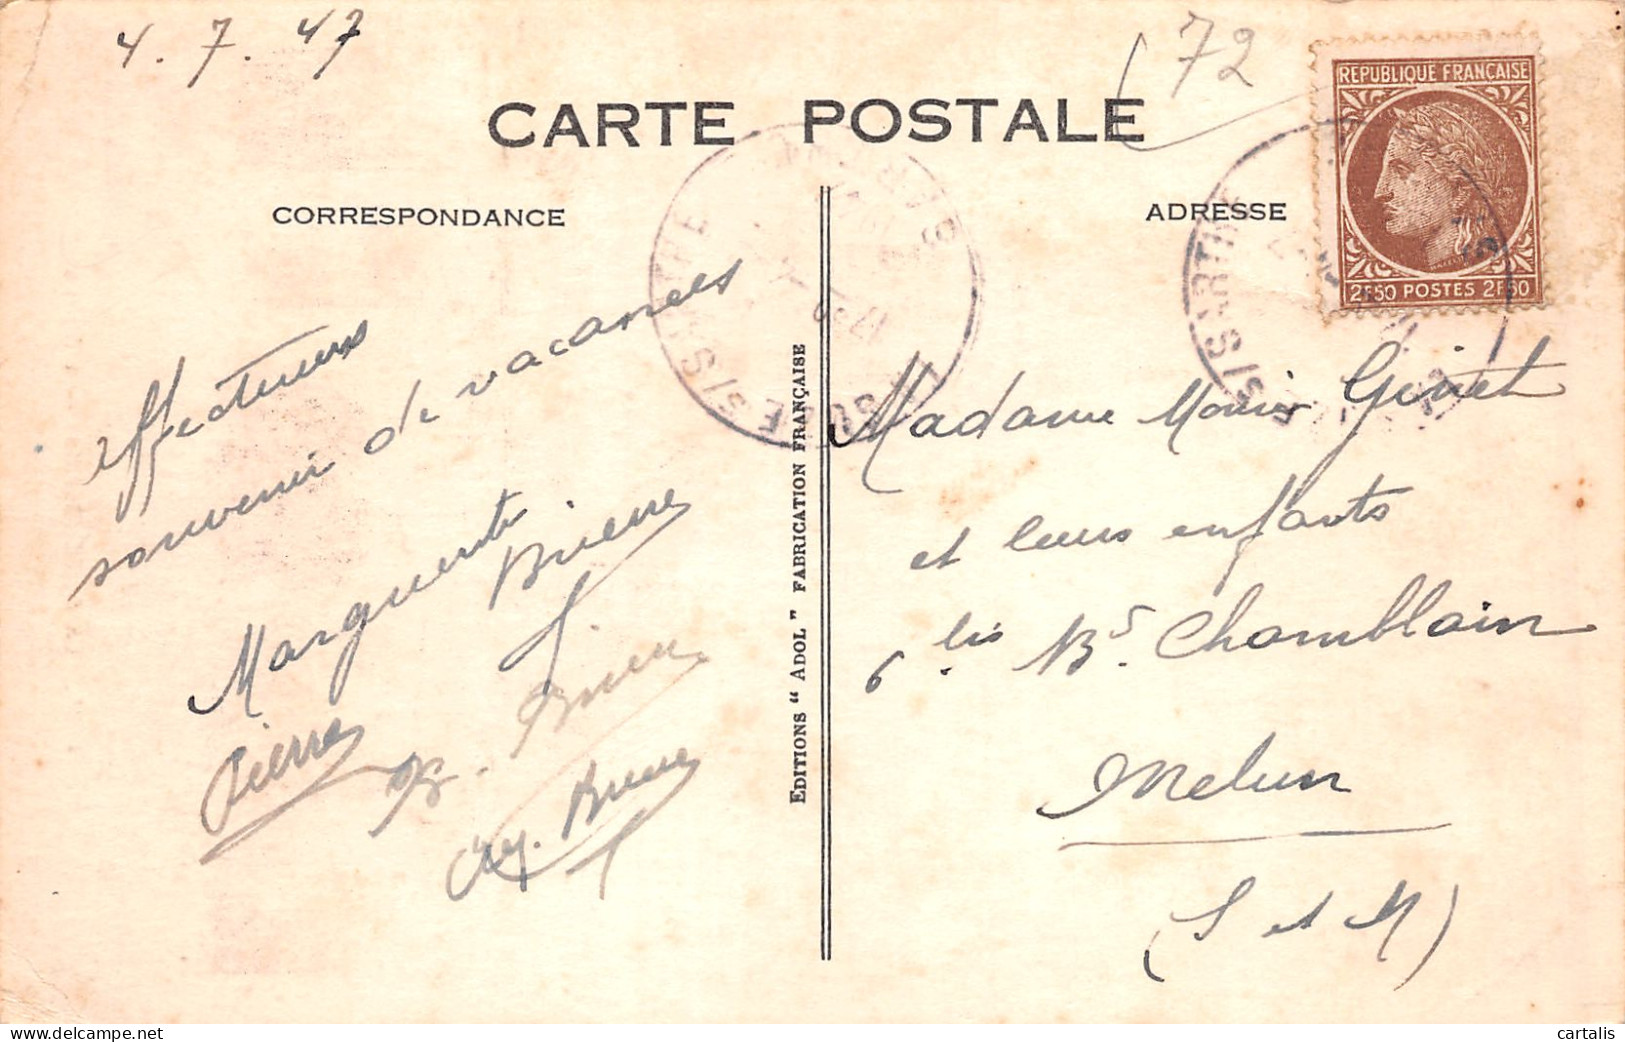 4.7.47
(72
CARTE POSTALE
REPUBLIQUE FRANÇAISE
2F50 POSTES 2F50
CORRESPONDANCE
ADRESSE
affectueux
souvenir de vacances
Marguerite Brierre
Pierre
EDITIONS "ADOL" FABRICATION FRANÇAISE
SOLESMES
SARTHE
Madame
et leurs enfants
6 bis Bd. Chamblain
Melun
(S et M)
Delcampe.net
cartalis